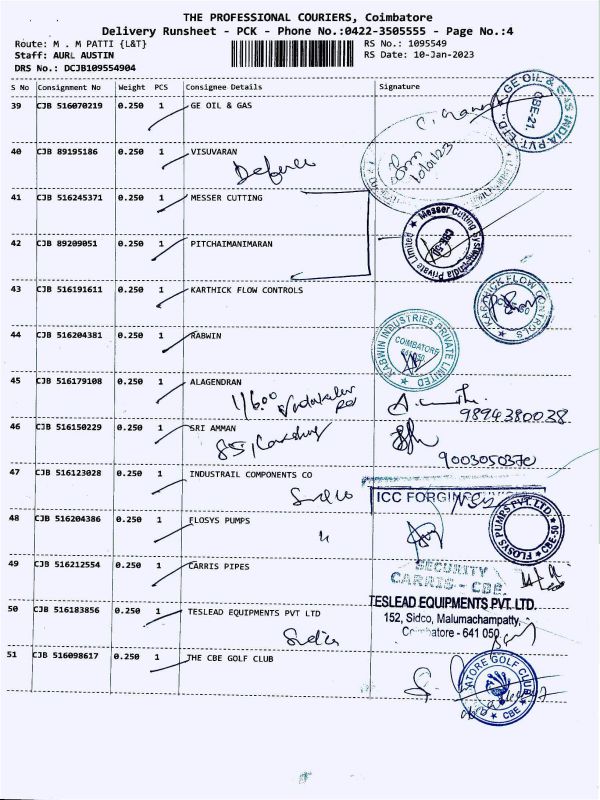 THE PROFESSIONAL COURIERS, Coimbatore
Delivery Runsheet - PCK - Phone No.:0422-3505555 - Page No.:4
Route: M . M PATTI {L&T}
RS No.: 1095549
Staff: AURL AUSTIN
RS Date: 10-Jan-2023
DRS No.: DCJB109554904
S No Consignment No Weight PCS Consignee Details Signature
39 CJB 516070219 0.250 1 GE OIL & GAS
GE OIL & GAS INDIA PVT. LTD. CBE-21.
40 CJB 89195186 0.250 1 VISUVARAN
10/01/23
41 CJB 516245371 0.250 1 MESSER CUTTING
Messer Cutting Systems India Private Limited CBE-50
42 CJB 89209051 0.250 1 PITCHAIMANIMARAN
43 CJB 516191611 0.250 1 KARTHICK FLOW CONTROLS
KARTHICK FLOW CONTROLS
44 CJB 516204381 0.250 1 RABWIN
RABWIN INDUSTRIES PRIVATE LIMITED COIMBATORE
45 CJB 516179108 0.250 1 ALAGENDRAN
9894380038
46 CJB 516150229 0.250 1 SRI AMMAN
9003050370
47 CJB 516123028 0.250 1 INDUSTRAIL COMPONENTS CO
Sidco
ICC FORGING
48 CJB 516204386 0.250 1 FLOSYS PUMPS
FLOSYS PUMPS PVT. LTD. CBE-50
49 CJB 516212554 0.250 1 CARRIS PIPES
SECURITY
CARRIS - CBE.
50 CJB 516183856 0.250 1 TESLEAD EQUIPMENTS PVT LTD
Sidco
TESLEAD EQUIPMENTS PVT. LTD.
152, Sidco, Malumachampatty,
Coimbatore - 641 050.
51 CJB 516098617 0.250 1 THE CBE GOLF CLUB
GOLF CLUB CBE